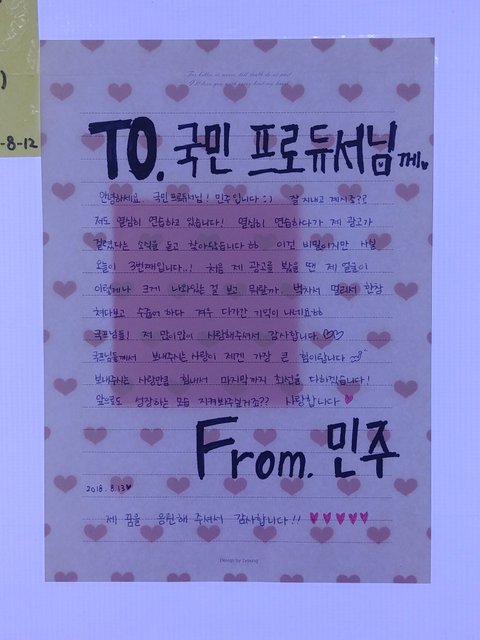 -8-12
TO. 국민 프로듀서님께♥
안녕하세요. 국민 프로듀서님! 민주입니다 :) 잘 지내고 계시죠??
저도 열심히 연습하고 있습니다! 열심히 연습하다가 제 광고가
걸렸다는 소식을 듣고 찾아왔습니다ㅎㅎ 이건 비밀이지만 사실
오늘이 3번째입니다..! 처음 제 광고를 봤을 땐 제 얼굴이
이렇게나 크게 나와있는 걸 보고 뭐랄까 벅차서 멀리서 한참
쳐다보고 수줍어 하다 겨우 다가간 기억이 나네요ㅎㅎ
국프님들! 저 많이많이 사랑해주셔서 감사합니다. ♡♡
국프님들께서 보내주시는 사랑이 제겐 가장 큰 힘이랍니다
보내주시는 사랑만큼 힘내서 마지막까지 최선을 다하겠습니다!
앞으로도 성장하는 모습 지켜봐주실거죠?? 사랑합니다 ♥
From. 민주
2018. 8.13♥
제 꿈을 응원해 주셔서 감사합니다!! ♥♥♥♥♥